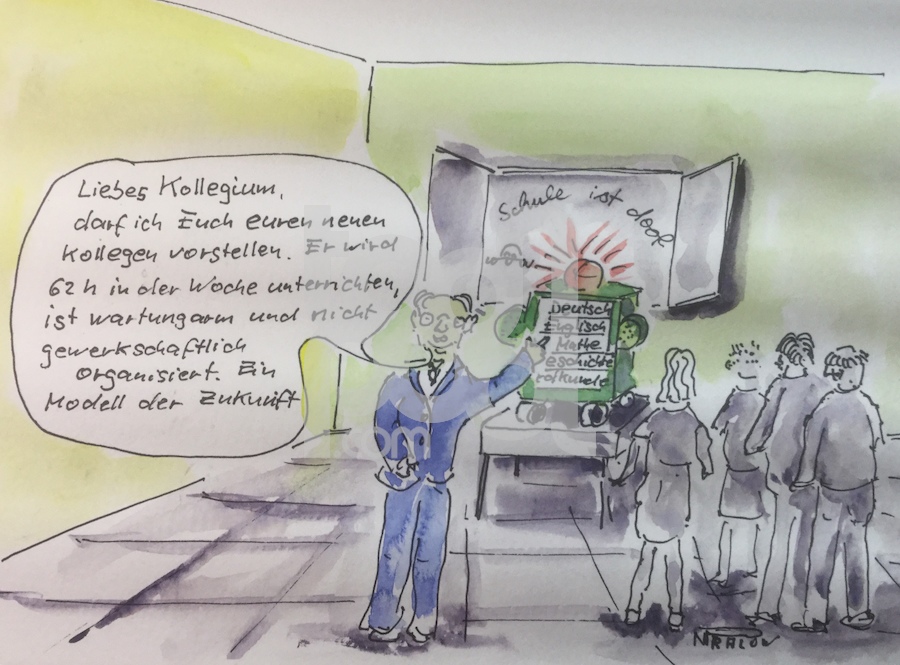 Liebes Kollegium,
darf ich Euch euren neuen
Kollegen vorstellen. Er wird
62 h in der Woche unterrichten,
ist wartungarm und nicht
gewerkschaftlich
organisiert. Ein
Modell der Zukunft
Schule ist doof
Deutsch
Englisch
Mathe
eschichte
rdkunde
com